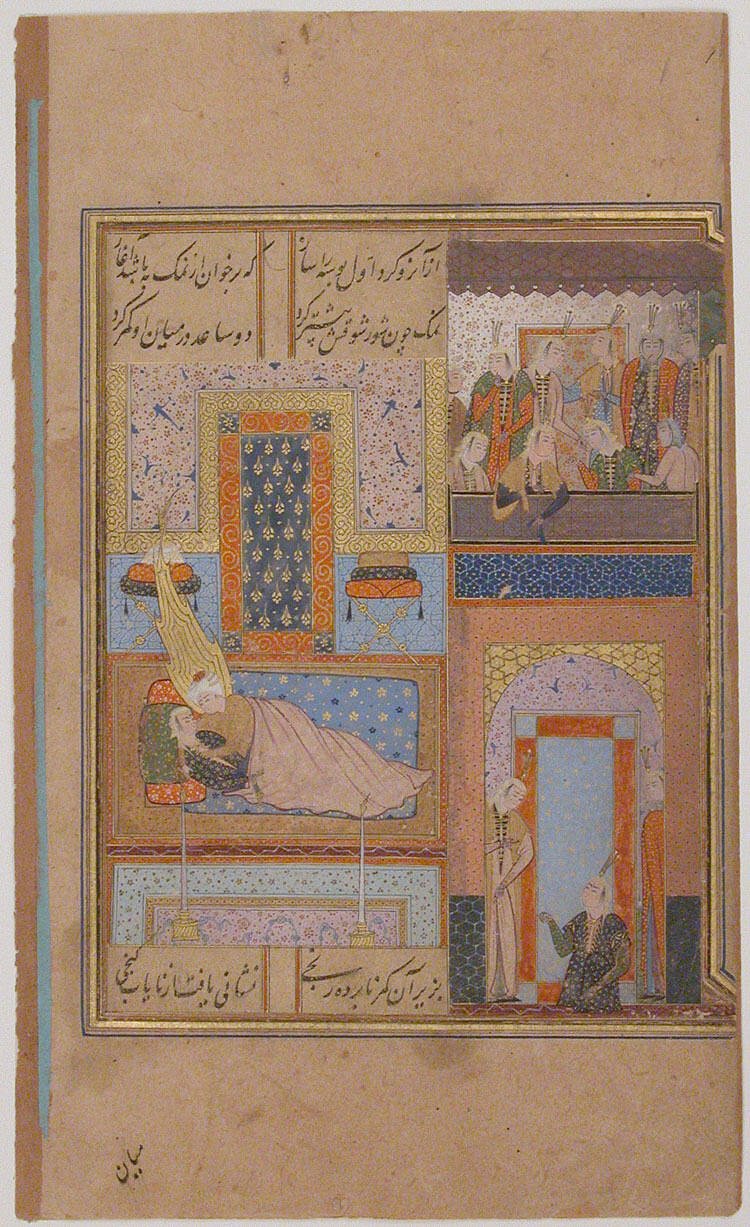 ازآنرو کرد اول بوسه را ساز که بر خوان از نمک به باشد آغاز
نمک چون شور شوقش بیشتر کرد دو ساعد در میان او کمر کرد
بزیر آن کمر نابرده رنجی نشانی یافت از نایاب گنجی
میان